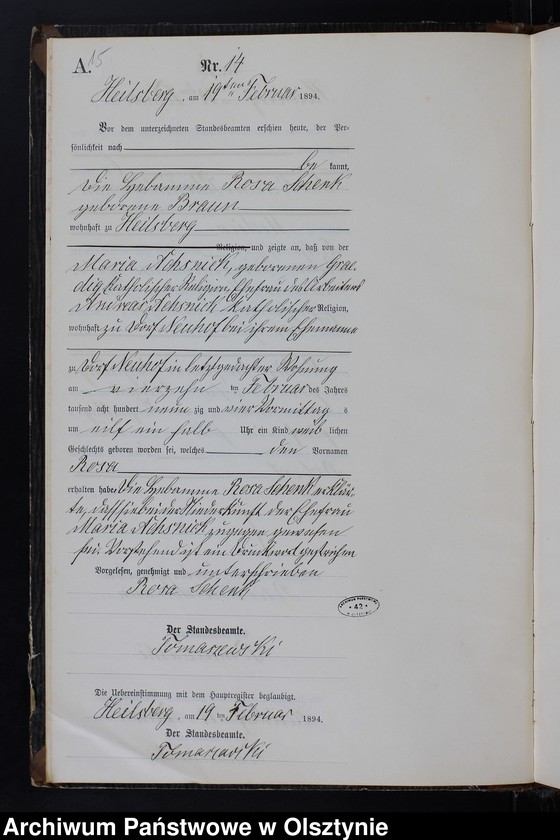 A. 15
Nr. 14
Heilsberg, am 19ten Februar 1894.
Vor dem unterzeichneten Standesbeamten erschien heute, der Per-
sönlichkeit nach
be kannt,
die Hebamme Rosa Schenk
geborene Braun
wohnhaft zu Heilsberg
Religion, und zeigte an, daß von der
Maria Achsnick, geborenen
katholischer Religion Ehefrau des Arbeiters
Andreas Achsnick katholischer Religion,
wohnhaft zu Dorf Neuhof bei ihrem Ehemanne
zu Dorf Neuhof in letztgedachter Wohnung
am vierzehn ten Februar des Jahres
tausend acht hundert neun zig und vier Vormittag s
um eilf ein halb Uhr ein Kind weib lichen
Geschlechts geboren worden sei, welches den Vornamen
Rosa
erhalten habe. Die Hebamme Rosa Schenk erklär-
te, daß sie bei der Niederkunft der Ehefrau
Maria Achsnick zugegen gewesen
sei. Vorstehend ist ein Druckwort gestrichen
Vorgelesen, genehmigt und unterschrieben
Rosa Schenk
ARCHIWUM PAŃSTWOWE
42
Der Standesbeamte.
Tomaszewski
Die Uebereinstimmung mit dem Hauptregister beglaubigt.
Heilsberg, am 19 ten Februar 1894.
Der Standesbeamte.
Tomaszewski
Archiwum Państwowe w Olsztynie